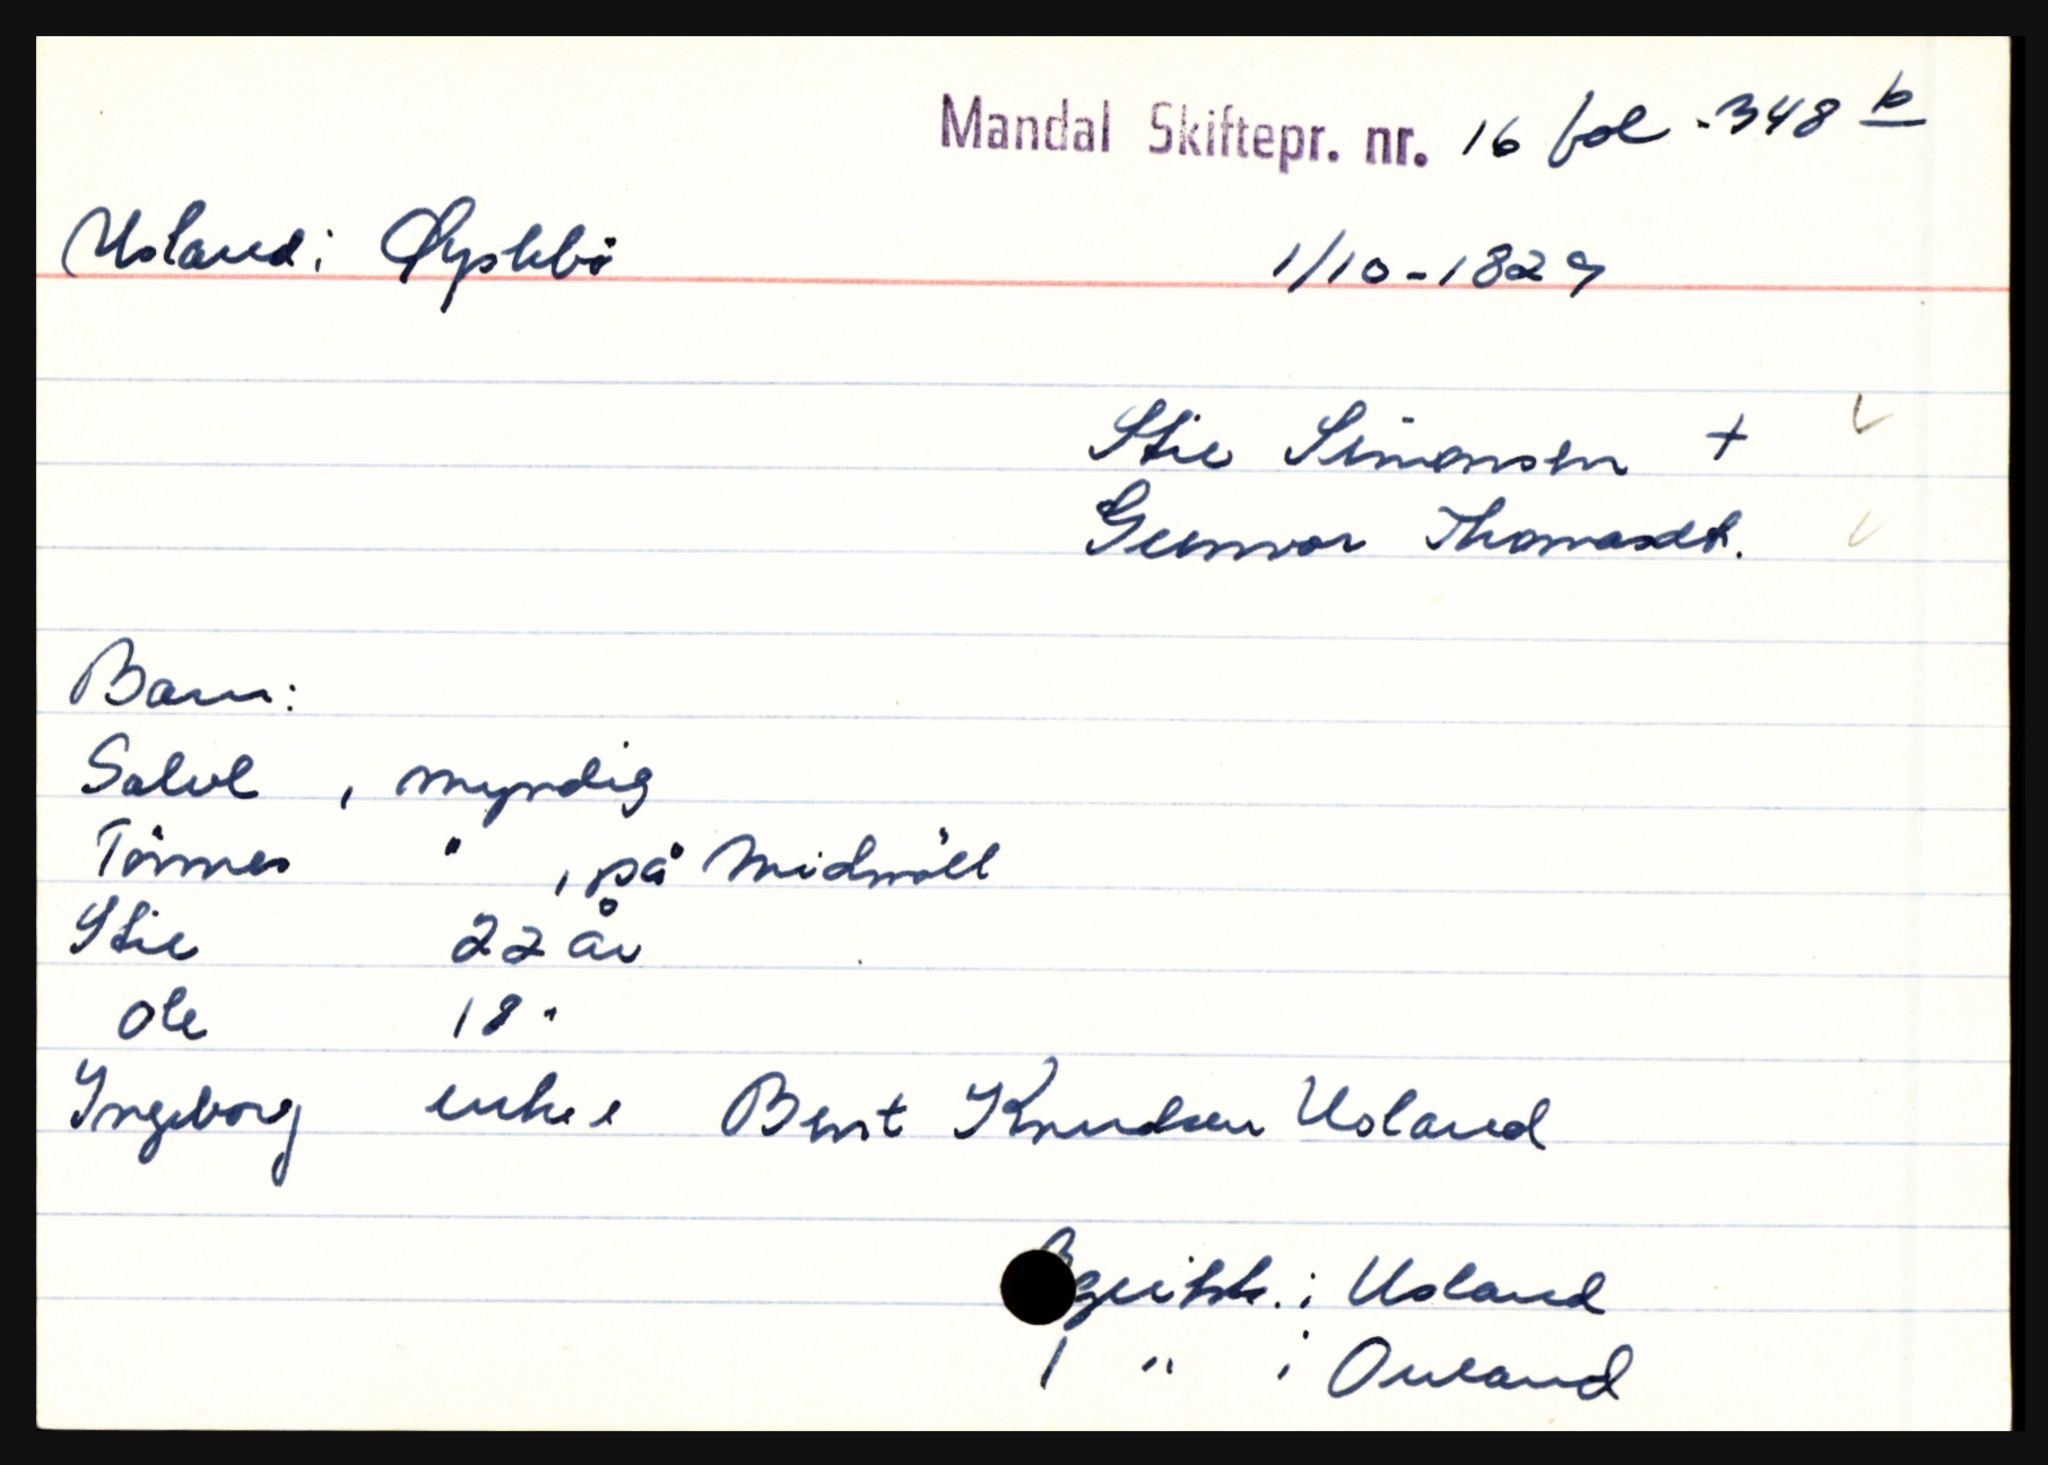 Mandal Skiftepr. nr. 16 fol - 348 b
Usland i Øyslebö 1/10-1829
Stie Simonsen +
Gunvor Thomasdt.
Barn:
Salvl , myndig
Tönnes " , på Midmöll
Stie 22 år
Ole 18 "
Ingeborg enke e Bent Knudsen Usland
i Usland
1 " i Ouland